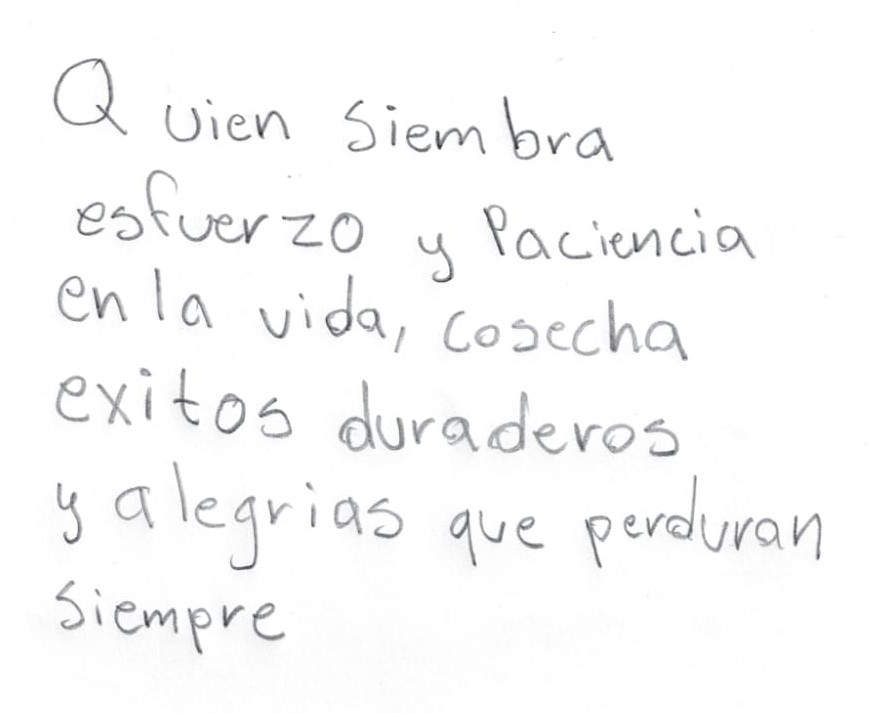 Quien siembra
esfuerzo y Paciencia
en la vida, cosecha
exitos duraderos
y alegrias que perduran
siempre